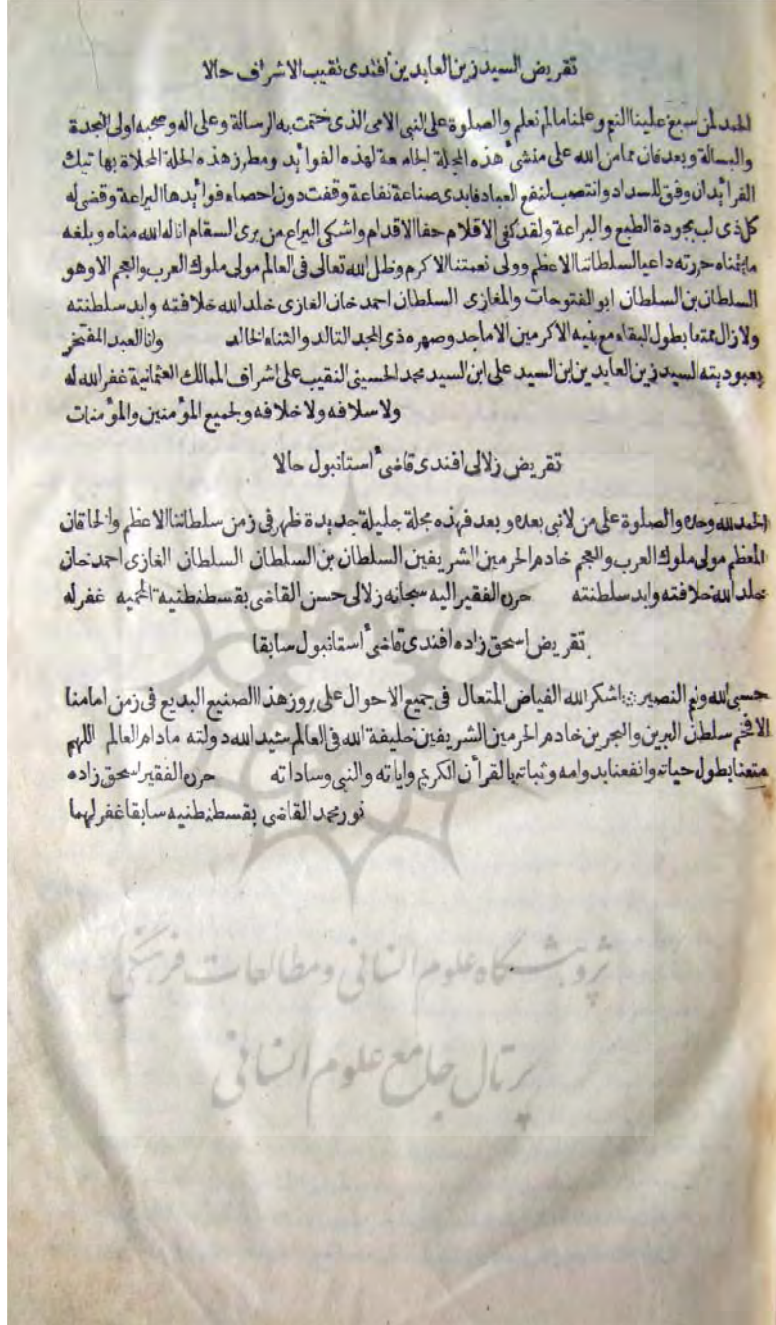 تقريض السيد زين العابدين افندى نقيب الاشراف حالا
الحمد لمن سبغ علينا النعم وعلمنا مالم نعلم والصلوة على النبى الامى الذى ختمت به الرسالة وعلى اله وصحبه اولى النجدة
والبسالة وبعد فان مما من الله على منشئ هذه المجلة الجامعة لهذه الفوائد ومطرز هذه الحلة المحلاة بها تيك
الفرائد ان وفق للسداد وانتصب لنفع العباد فابدى صناعة نفاعة وقفت دون احصاء فوائدها البراعة وقضى له
كل ذى لب بجودة الطبع والبراعة ولقد كفى الاقلام حفا الاقدام واشكى اليراع من برى السقام اناله الله مناه وبلغه
ما يتمناه حررته داعيا لسلطاننا الاعظم وولى نعمتنا الاكرم وظل الله تعالى فى العالم مولى ملوك العرب والعجم الا وهو
السلطان بن السلطان ابو الفتوحات والمغازى السلطان احمد خان الغازى خلد الله خلافته وابد سلطنته
ولازال ممتعا بطول البقاء مع بنيه الاكرمين الاماجد وصهره ذى المجد التالد والثناء الخالد وانا العبد المفتخر
بعبوديته السيد زين العابدين ابن السيد على ابن السيد محمد الحسينى النقيب على اشراف الممالك العثمانية غفر الله له
ولاسلافه ولاخلافه ولجميع المؤمنين والمؤمنات
تقريض زلالى افندى قاضئ استانبول حالا
الحمد لله وحده والصلوة على من لانبى بعده وبعد فهذه مجلة جليلة جديدة ظهر فى زمن سلطاننا الاعظم والخاقان
المعظم مولى ملوك العرب والعجم خادم الحرمين الشريفين السلطان بن السلطان السلطان الغازى احمد خان
خلد الله خلافته وابد سلطنته حرره الفقير اليه سبحانه زلالى حسن القاضى بقسطنطنية المحميه غفر له
تقريض اسحق زاده افندى قاضئ استانبول سابقا
حسبى الله ونعم النصير اشكر الله الفياض المتعال فى جميع الاحوال على بروز هذا الصنيع البديع فى زمن امامنا
الافخم سلطان البرين والبحرين خادم الحرمين الشريفين خليفة الله فى العالم شيد الله دولته مادام العالم اللهم
متعنا بطول حياته وانفعنا بدوامه وثباته بالقرأن الكريم واياته والنبى وساداته حرره الفقير اسحق زاده
نور محمد القاضى بقسطنطنيه سابقا غفر لهما
پژوهشگاه علوم انسانی و مطالعات فرهنگی
پرتال جامع علوم انسانی